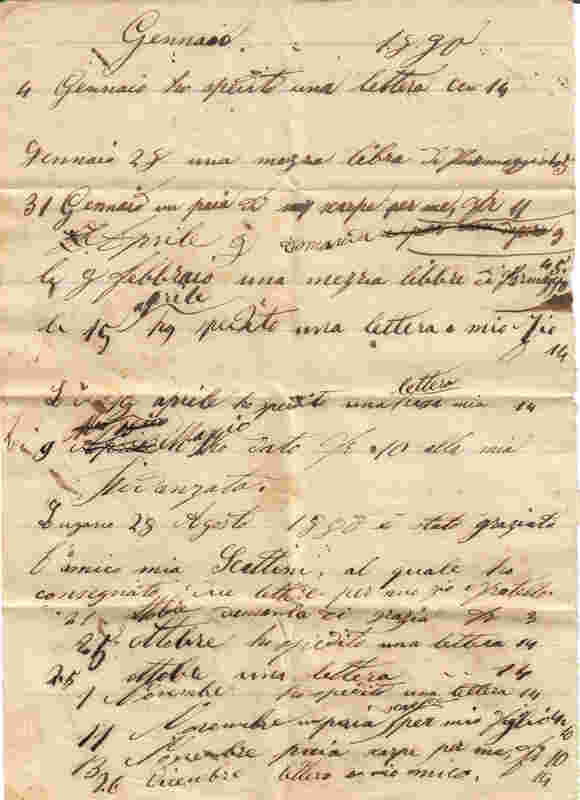 Gennaio. 1890
4 Gennaio ho spedito una lettera cen 14
Gennaio 28 una mezza libra di
31 Gennaio un paia di scarpe per me, fr 11
Aprile 9 domanda 3
li 9 febbraio una mezza libbre di
aprile
li 15 ho spedito una lettera a mio Zio
14
aprile ho spedito una lettera mia 14
9 Maggio ho dato fr. 10 alla mia
fidanzata.
Lugano 28 Agosto 1890 è stato graziato
l'amico mio Scettini, al quale ho
consegnato lettere per mio zio e fratello.
21 domanda di grazia fr 3
ottobre ho spedito una lettera 14
25 ottobre una lettera 14
1 Novembre ho spedito una lettera 14
11 Novembre un paia scarpe per mio figlio
13 Novembre paia scarpe per me, fr 10
26 Dicembre lettera a mio amico. 14